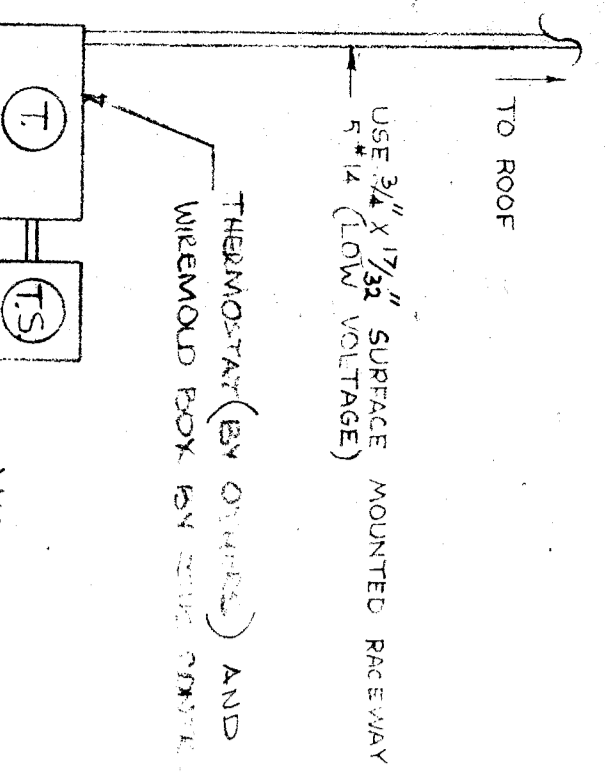 TO ROOF
USE 3/4" X 17/32" SURFACE MOUNTED RACEWAY
5 #14 (LOW VOLTAGE)
THERMOSTAT (BY OTHERS) AND
WIREMOLD BOX BY
T.
T.S.